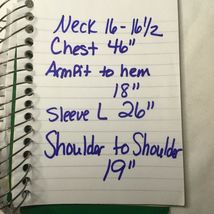 Neck 16-16 1/2
Chest 46"
Armpit to hem
18"
Sleeve L 26"
Shoulder to Shoulder
19"